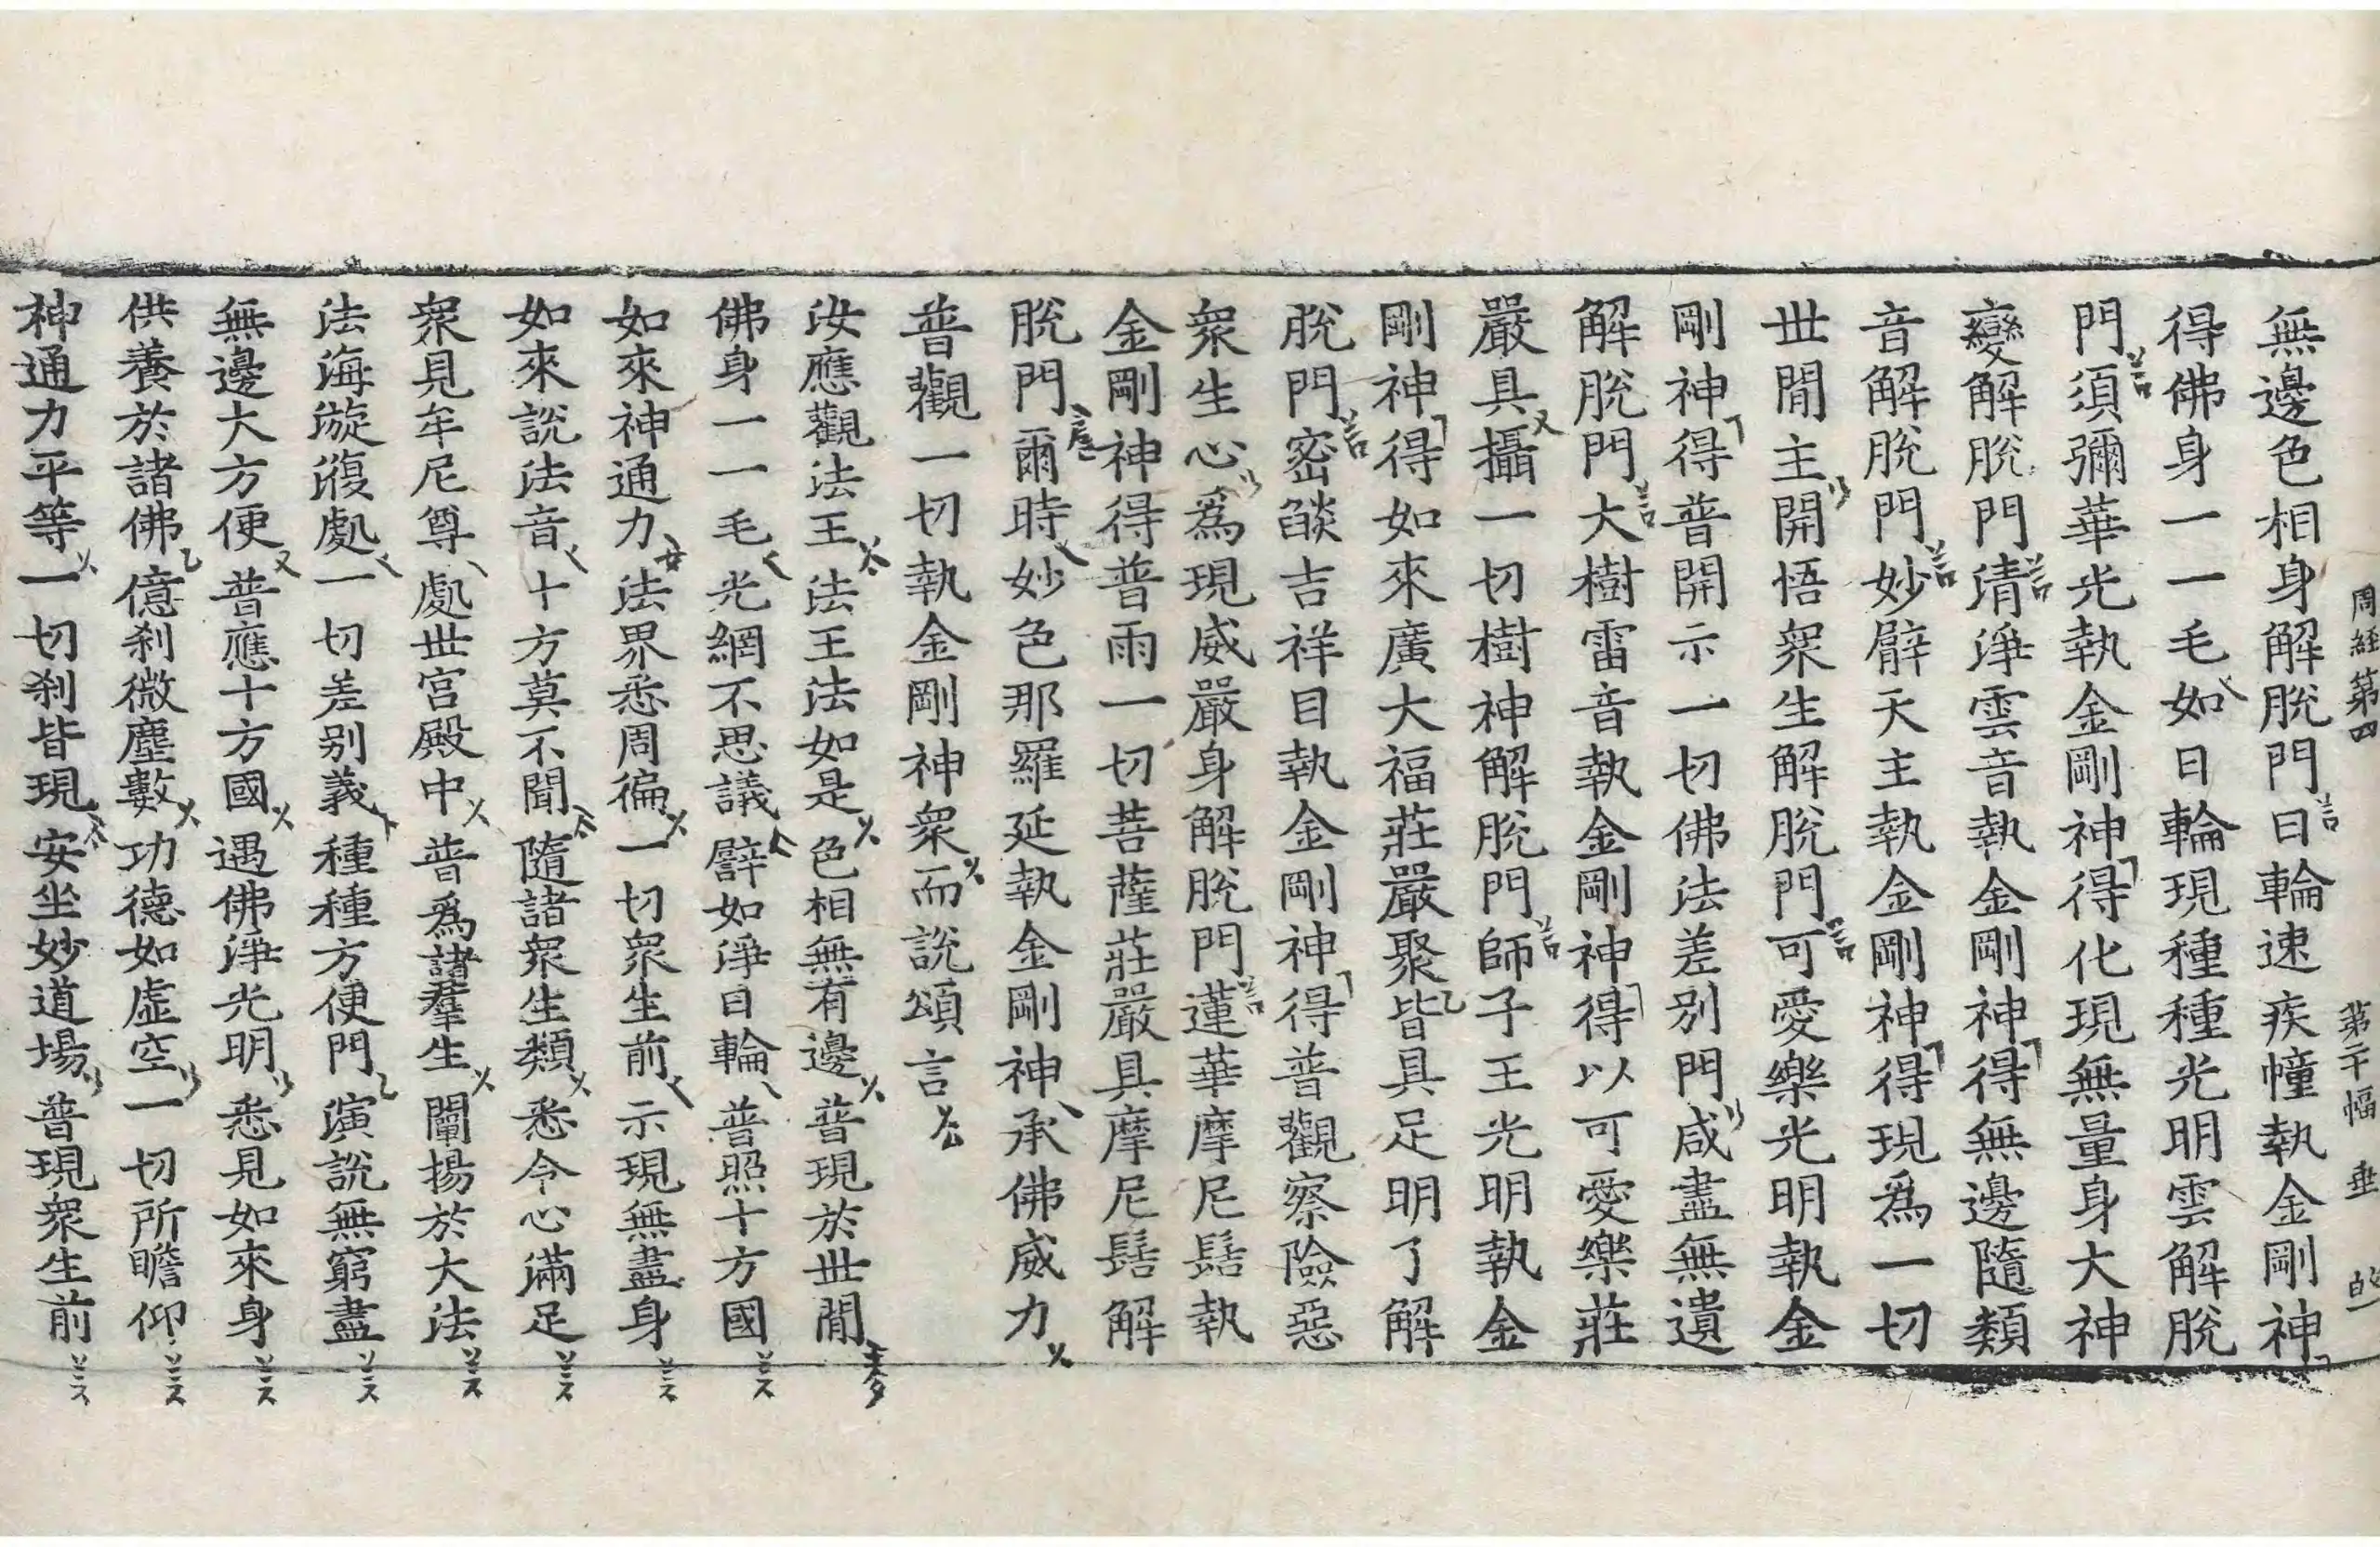 周経第四 第二十幅 垂
無邊色相身解脫門日輪速疾幢執金剛神
得佛身一一毛如日輪現種種光明雲解脫
門須彌華光執金剛神得化現無量身大神
變解脫門清淨雲音執金剛神得無邊隨類
音解脫門妙臂天主執金剛神得現爲一切
世間主開悟衆生解脫門可愛樂光明執金
剛神得普開示一切佛法差别門咸盡無遺
解脫門大樹雷音執金剛神得以可愛樂莊
嚴具攝一切樹神解脫門師子王光明執金
剛神得如來廣大福莊嚴聚皆具足明了解
脫門密燄吉祥目執金剛神得普觀察險惡
衆生心爲現威嚴身解脫門蓮華摩尼髻執
金剛神得普雨一切菩薩莊嚴具摩尼髻解
脫門爾時妙色那羅延執金剛神承佛威力
普觀一切執金剛神衆而說頌言
汝應觀法王法王法如是色相無有邊普現於世間
佛身一一毛光網不思議譬如淨日輪普照十方國
如來神通力法界悉周徧一切衆生前示現無盡身
如來說法音十方莫不聞隨諸衆生類悉令心滿足
衆見牟尼尊處世宫殿中普爲諸羣生闡揚於大法
法海漩澓處一切差别義種種方便門演說無窮盡
無邊大方便普應十方國遇佛淨光明悉見如來身
供養於諸佛億刹微塵數功德如虚空一切所瞻仰
神通力平等一切刹皆現安坐妙道場普現衆生前